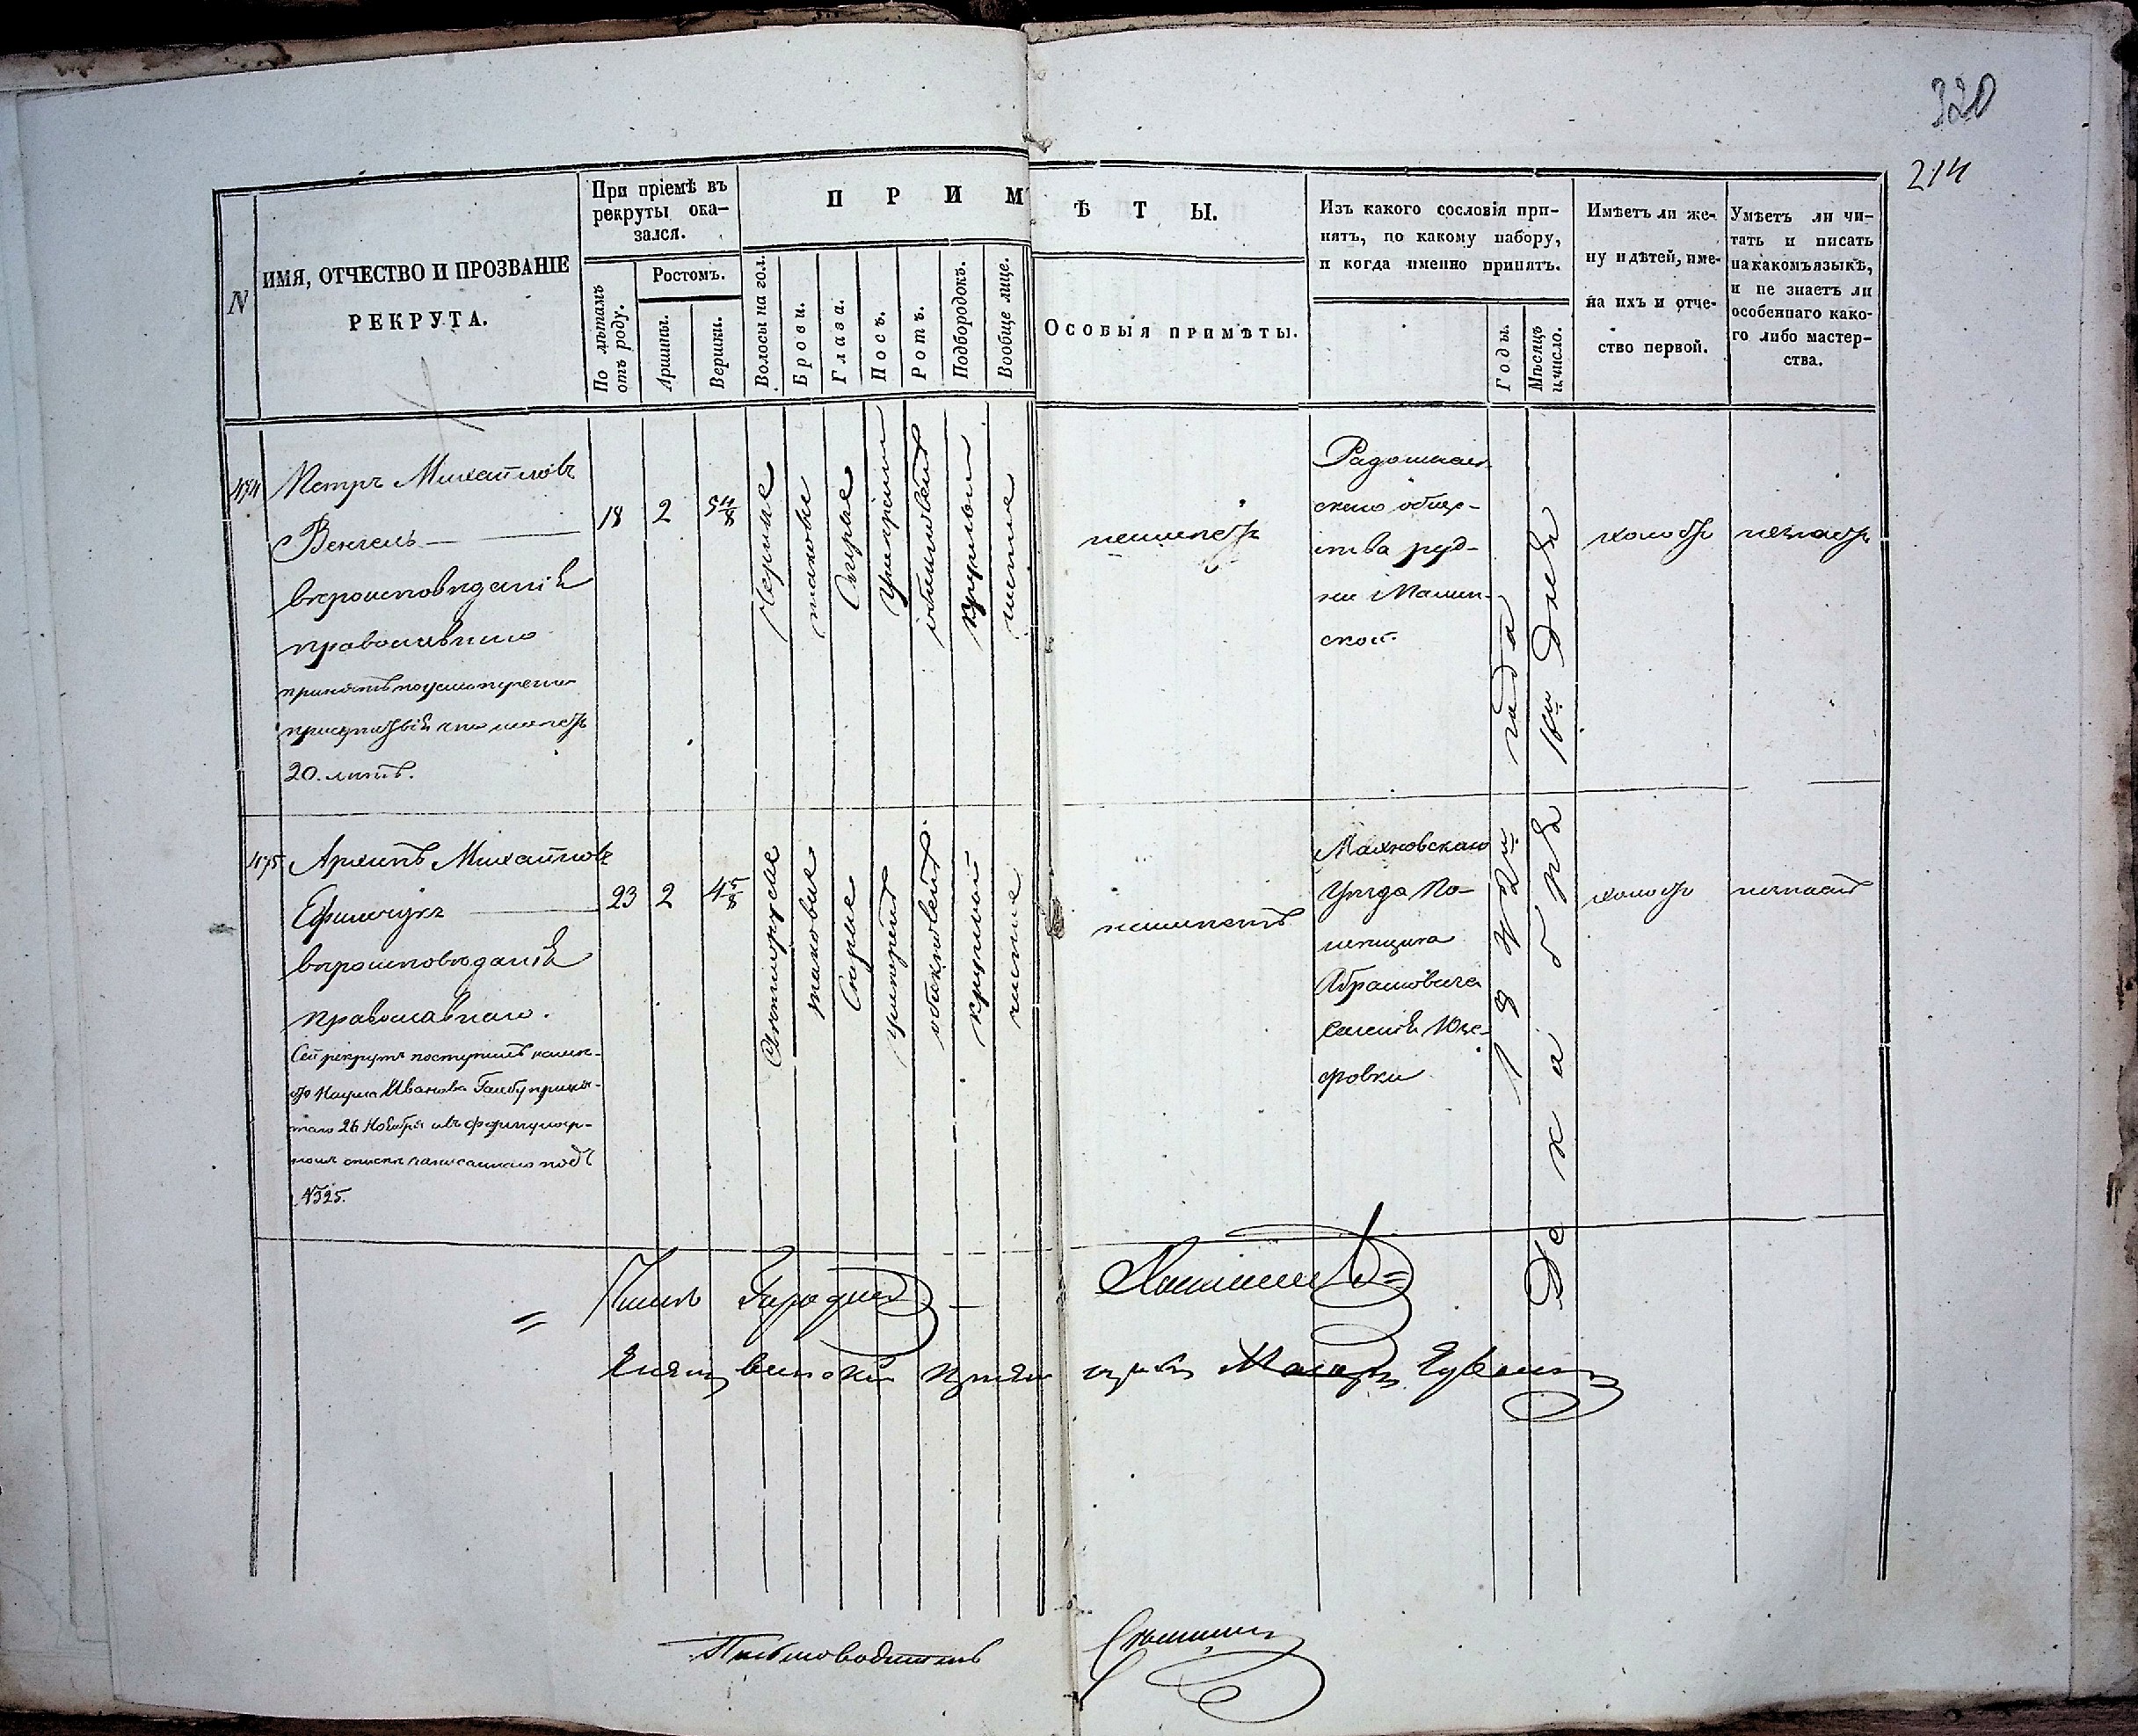 320
214
N
ИМЯ, ОТЧЕСТВО И ПРОЗВАНІЕ
РЕКРУТА.
При пріемѣ въ
рекруты ока-
зался.
По лѣтамъ
отъ роду.
Ростомъ.
Аршины.
Вершки.
П Р И М Ѣ Т Ы.
Волосы на гол.
Брови.
Глаза.
Носъ.
Ротъ.
Подбородокъ.
Вообще лице.
Особыя примѣты.
Изъ какого сословія при-
нятъ, по какому набору,
и когда именно принятъ.
Годы.
Мѣсяцъ
и число.
Имѣетъ ли же-
ну и дѣтей, име-
на ихъ и отче-
ство первой.
Умѣетъ ли чи-
тать и писать
на какомъ языкѣ,
и не знаетъ ли
особеннаго како-
го либо мастер-
ства.
474
Петръ Михайловъ
Венгель
вѣроисповѣданія
православнаго
принятъ по усмотренію
присутствія что имеетъ
20. лѣтъ.
18
2
5 4/8
Черные
таковые
Серые
Умерен
обыкновен
круглый
чистое
неимеетъ
Радомысл
скаго общес-
тва руд-
ни Малин-
ской
холостъ
незнаетъ
475
Архипъ Михайловъ
Ефимчукъ
вѣроисповѣданія
православнаго.
Сей рекрутъ поступилъ намес-
то Наума Иванова Галбу приня-
таго 26 Ноября и въ формуляр-
номъ списке записаннаго подъ
№325.
23
2
4 5/8
Светлорусые
таковые
Серые
умерен
обыкновен
круглый
чистое
неимеетъ
Махновскаго
Уезда По-
мещика
Абрамовича
Селенія Юзе-
фовки
холостъ
незнаетъ
1842 года
Декабря 1го дня
Письмоводитель